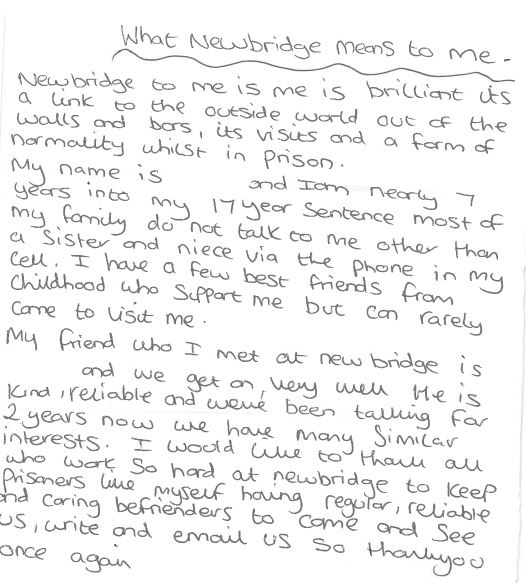 What Newbridge Means to me.
Newbridge to me is me is brilliant its
a link to the outside world out of the
walls and bars, its visits and a form of
normality whilst in prison.
My name is and I am nearly 7
years into my 17 year Sentence most of
my family do not talk to me other than
a Sister and niece via the phone in my
Cell. I have a few best friends from
Childhood who Support me but can rarely
Come to visit me.
My friend who I met at new bridge is
and we get on, very well He is
Kind, reliable and weve been talking for
2 years now we have many Similar
interests. I would like to thank all
who work so hard at newbridge to keep
Prisoners like myself having regular, reliable
and caring befrienders to Come and See
us, write and email us so thankyou
once again